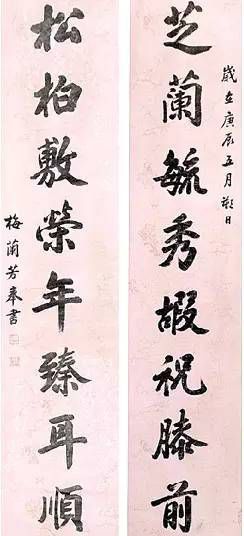 歲在庚辰五月日
芝蘭毓秀嘏祝膝前
松柏敷榮年臻耳順
梅蘭芳奉書